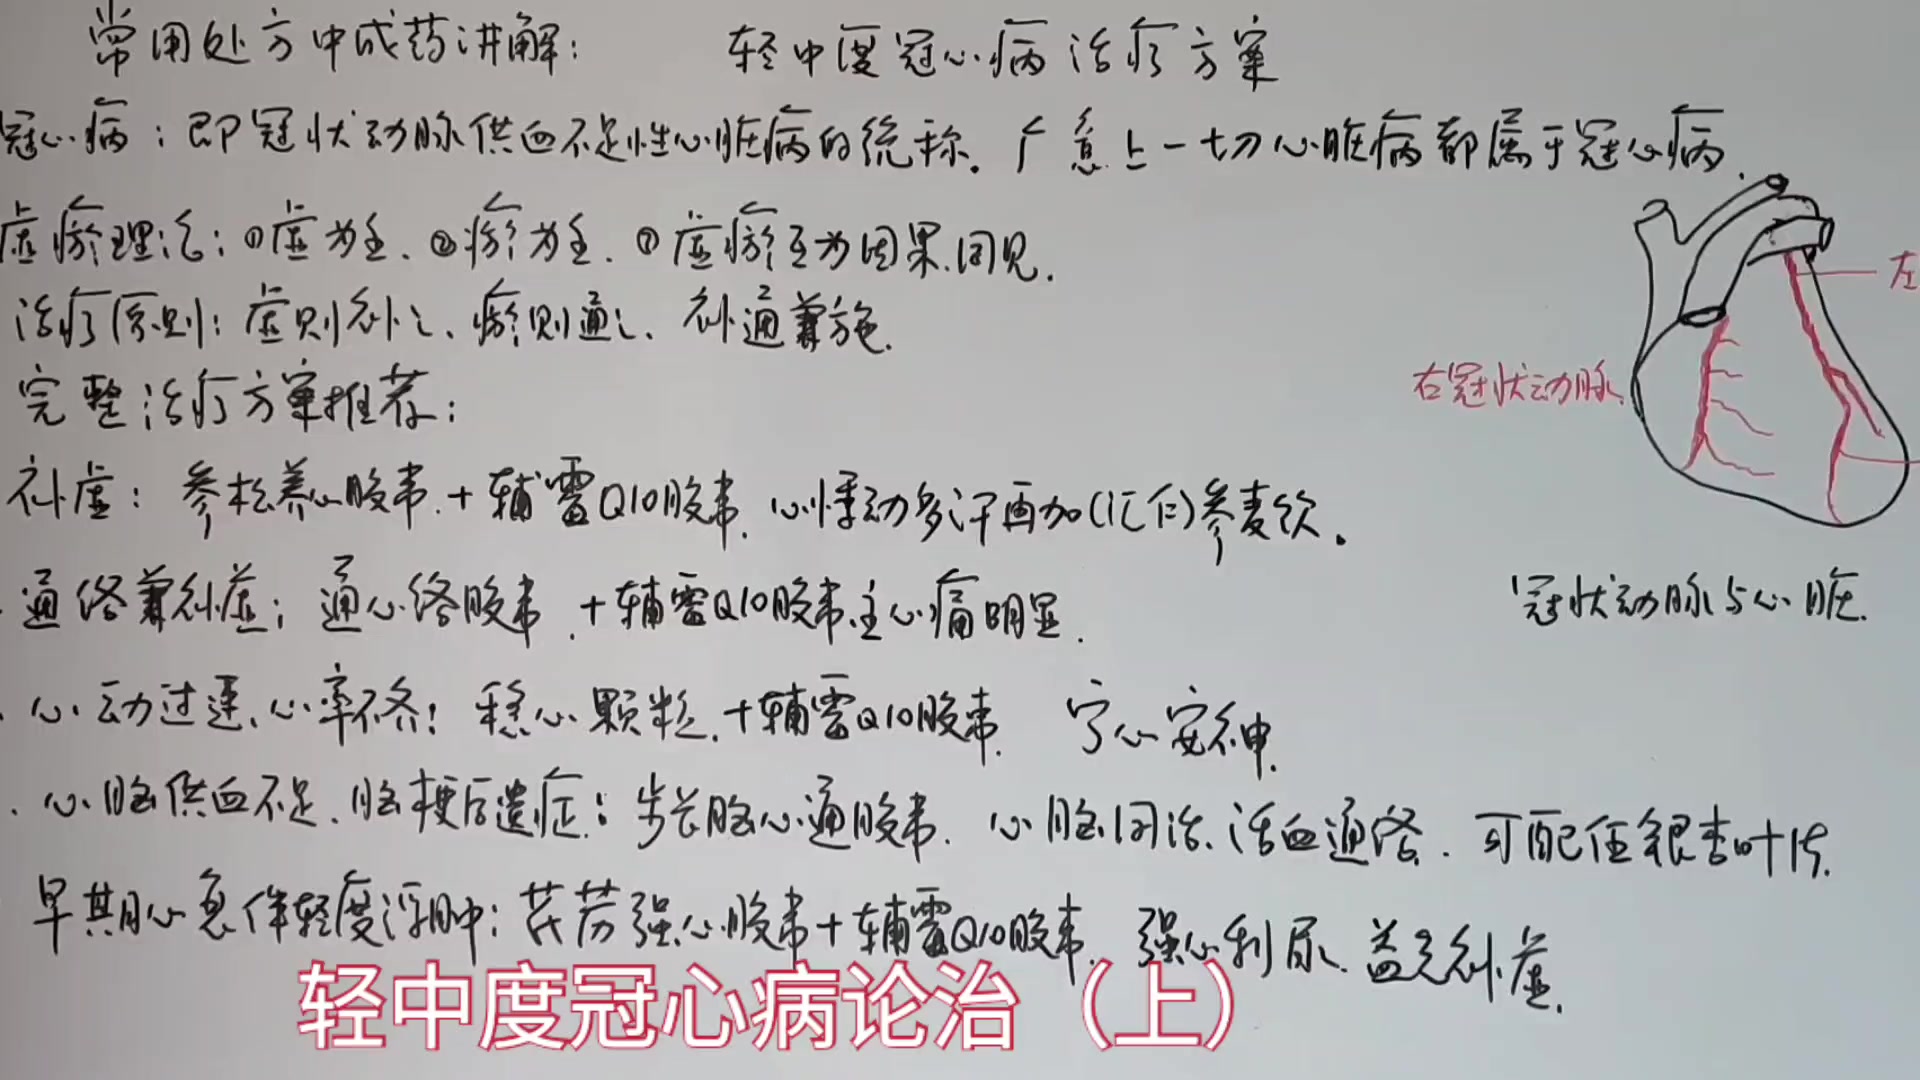 常用处方中成药讲解： 轻中度冠心病治疗方案
冠心病：即冠状动脉供血不足性心脏病的统称。广意上一切心脏病都属于冠心病.
虚瘀理论：①虚为主.②瘀为主.③虚瘀互为因果.同见.
治疗原则：虚则补之、瘀则通之、补通兼施.
完整治疗方案推荐：
补虚：参松养心胶囊.+辅霉Q10胶囊.心悸动多汗再加(汇仁)参麦饮.
通络兼补虚：通心络胶囊.+辅霉Q10胶囊.主心痛明显.
心动过速、心率不齐：稳心颗粒.+辅霉Q10胶囊. 宁心安神.
心脑供血不足、脑梗后遗症：步长脑心通胶囊. 心脑同治、活血通络. 可配伍银杏叶片.
早期心急伴轻度浮肿：芪苈强心胶囊+辅霉Q10胶囊. 强心利尿.益气补虚.
左
右冠状动脉
冠状动脉与心脏.
轻中度冠心病论治（上）